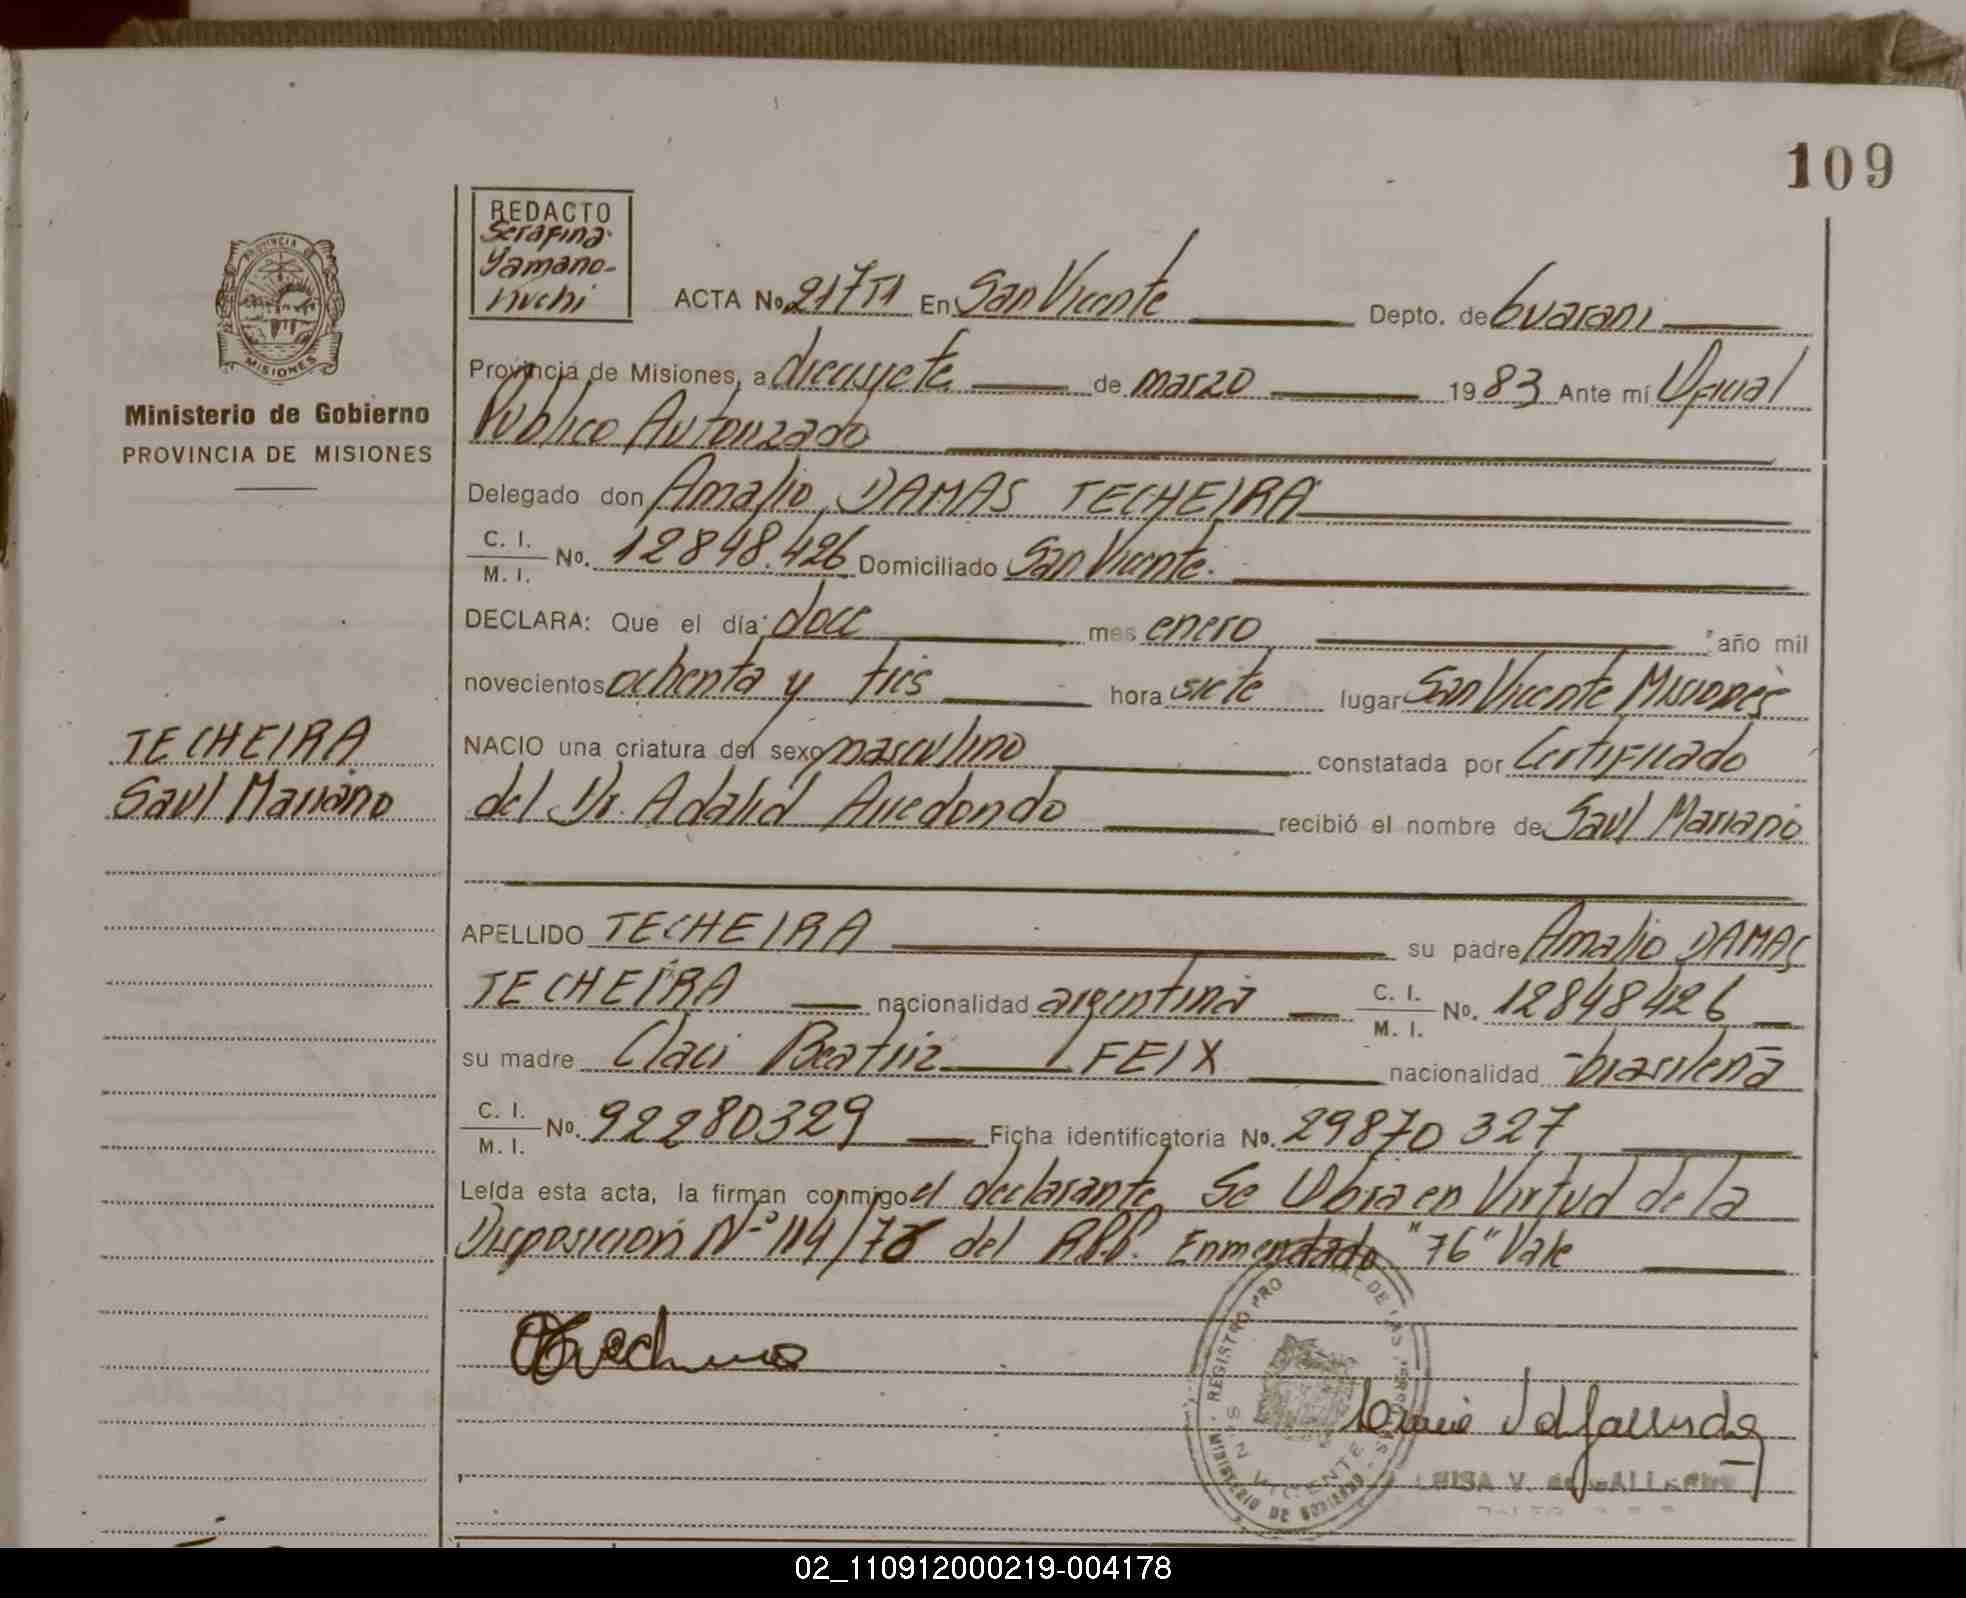 109
REDACTO
Serafina
Yamano-
kuchi
PROVINCIA
MISIONES
Ministerio de Gobierno
PROVINCIA DE MISIONES
ACTA No. 217 T1 En San Vicente Depto. de Guarani
Provincia de Misiones, a diecisyete de marzo 1983 Ante mí Oficial
Publico Autorizado
Delegado don Amalio DAMAS TECHEIRA
C. I.
M. I. No. 12848.426 Domiciliado San Vicente.
DECLARA: Que el día doce mes enero año mil
novecientos ochenta y tres hora siete lugar San Vicente Misiones
TECHEIRA
Saul Mariano
NACIO una criatura del sexo masculino constatada por Certificado
del Dr. Adalid Arredondo recibió el nombre de Saul Mariano
APELLIDO TECHEIRA su padre Amalio DAMAS
TECHEIRA nacionalidad argentina C. I.
M. I. No. 12848426
su madre Claci Beatriz FEIX nacionalidad brasileña
C. I.
M. I. No. 92280329 Ficha identificatoria No. 29870327
Leída esta acta, la firman conmigo el declarante, Se Obra en Virtud de la
Disposicion Nº 114/76 del R.P.P. Enmendado "76" Vale
REGISTRO PRO DE LAS PERSONAS
MINISTERIO DE GOBIERNO
SAN VICENTE
LUISA V. de GALLARDO
02_110912000219-004178